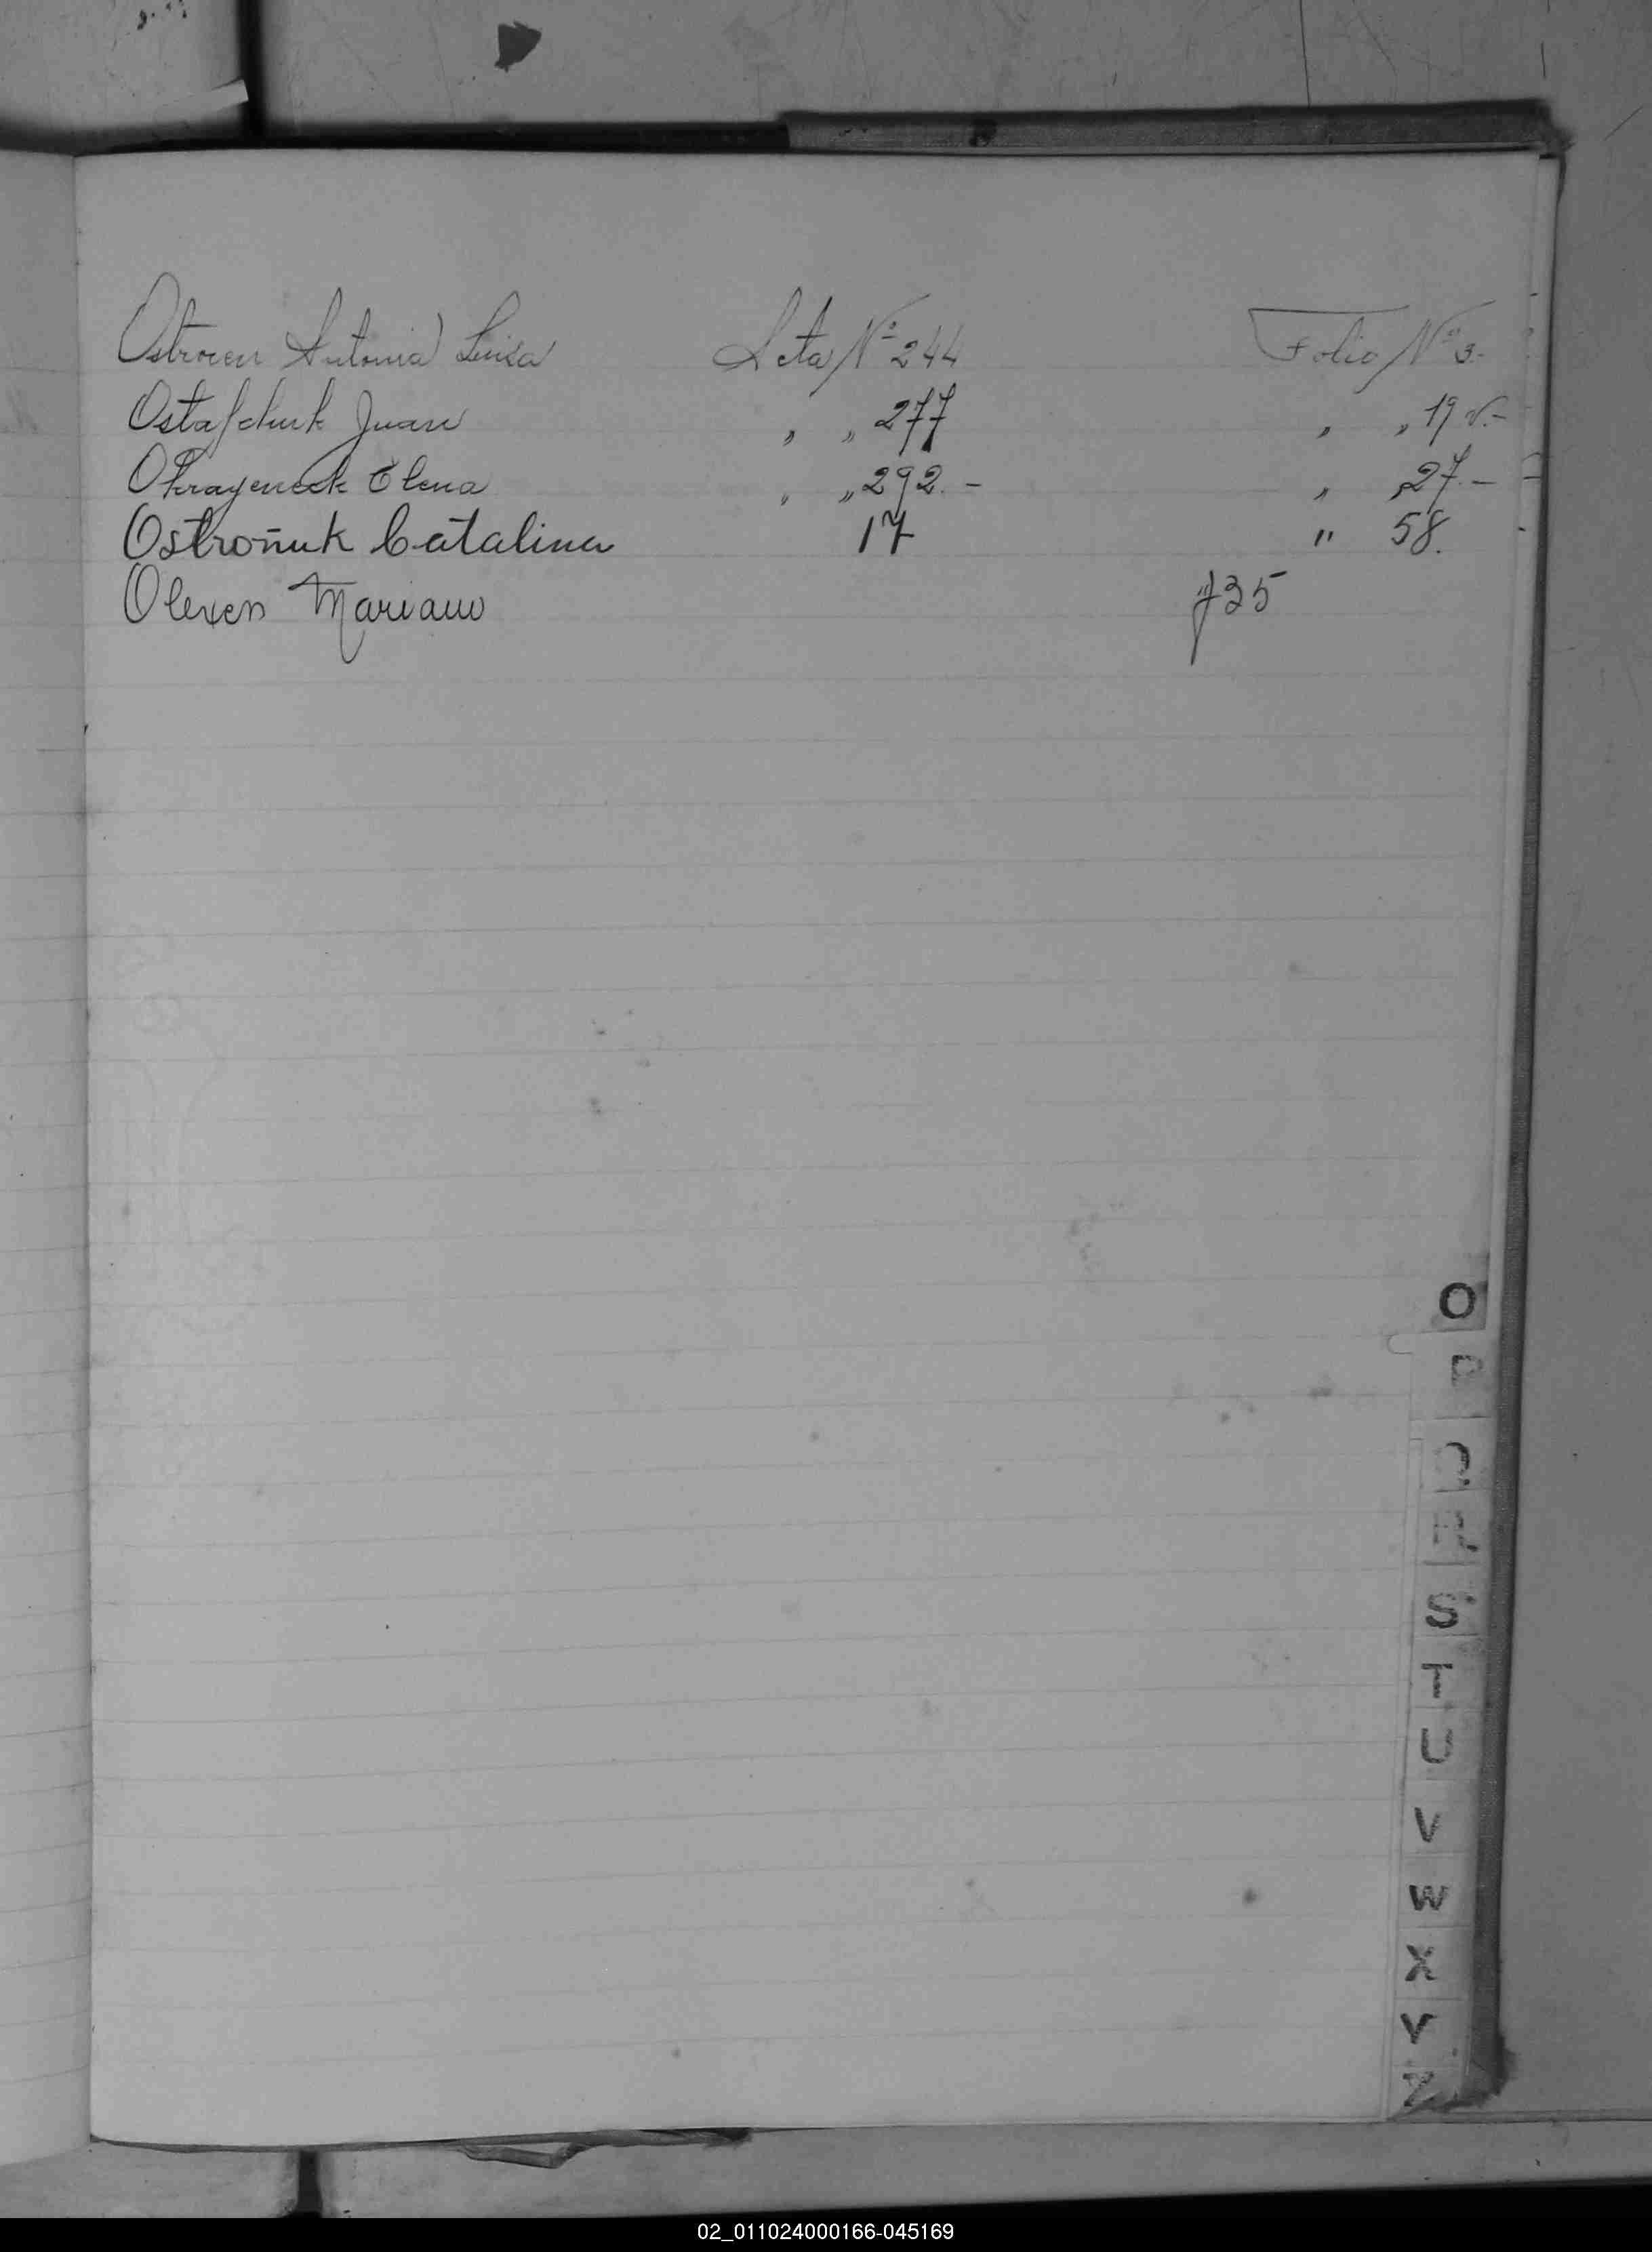 Ostrocen Antonia Luisa Acta Nº 244 Folio Nº 3.-
Ostafchuk Juan „ „ 277 „ „ 19 v.-
Okrayeneck Elena „ „ 292.- „ „ 27.-
Ostroñuk Catalina 17 " 58.
Olexen Mariano f 35
O
P
Q
R
S
T
U
V
W
X
Y
Z
02_011024000166-045169